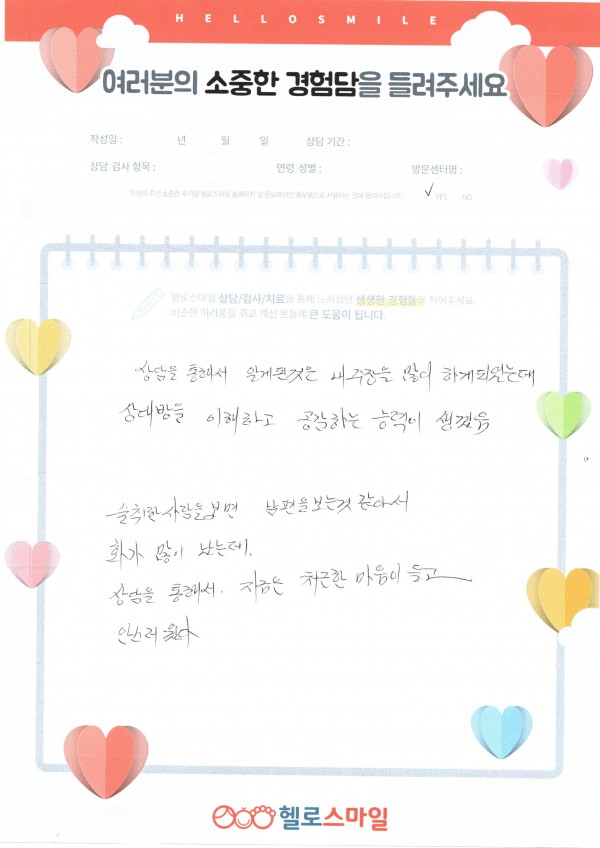 HELLOSMILE
여러분의 소중한 경험담을 들려주세요
작성일 : 년 월 일 상담 기간 :
상담·검사 항목 : 연령·성별 : 방문센터명 :
작성해 주신 소중한 후기를 헬로스마일 홈페이지 및 온오프라인 홍보용으로 사용하는 것에 동의하십니까? ✓ YES NO
헬로스마일 상담/검사/치료를 통해 느끼셨던 생생한 경험들을 적어주세요.
비슷한 어려움을 겪고 계신 분들께 큰 도움이 됩니다.
상담을 통해서 알게된것은 내주장을 많이 하게되었는데
상대방을 이해하고 공감하는 능력이 생겼음
술취한 사람을 보면 남편을보는것 같아서
화가 많이 났는데.
상담을 통해서. 지금은 측은한 마음이 들고
안쓰러웠다
헬로스마일